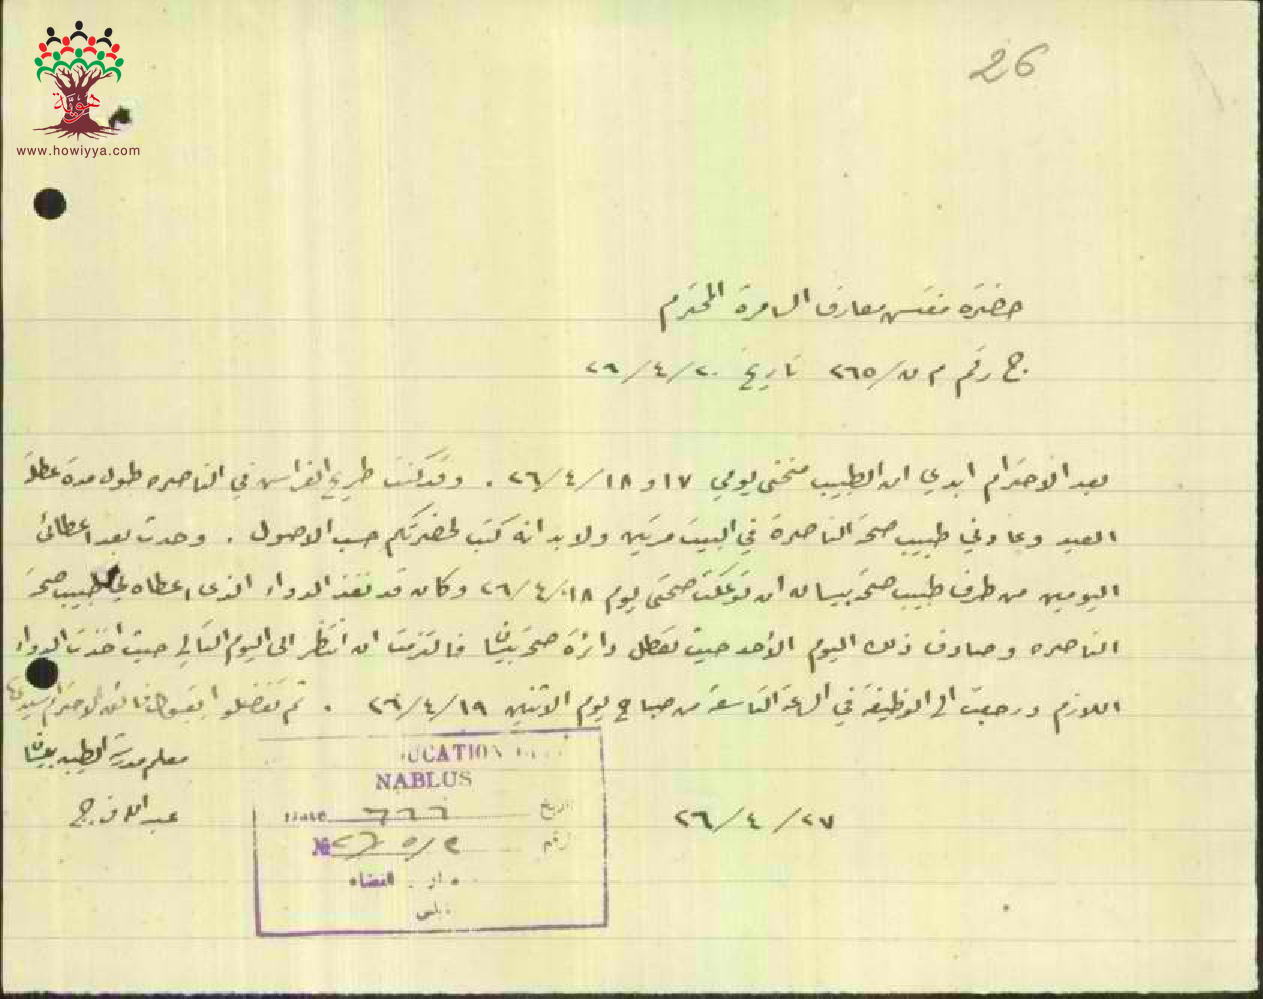 هويّة
www.howiyya.com
26
حضرة مفتش معارف السامرة المحترم
ج رقم م ن/٢٦٥ تاريخ ٢٠/٤/٢٦
بعد الاحترام ابدي ان الطبيب منحني يومي ١٧ و ١٨/٤/٢٦ . وقد كنت طريح الفراش في الناصره طول مدة عطلة
العيد وعادني طبيب صحة الناصرة في البيت مرتين ولا بد انه كتب لحضرتكم حسب الاصول . وحدث بعد اعطائي
اليومين من طرف طبيب صحة بيسان ان توعكت صحتي يوم ١٨/٤/٢٦ وكان قد نفذ الدواء الذي اعطاه لي طبيب صحة
الناصره وصادف ذلك اليوم الأحد حيث تعطل دائرة صحة بيسان فالتزمت ان انتظر الى اليوم التالي حيث اخذت الدواء
اللازم ورجعت الى الوظيفة في الساعة التاسعة من صباح يوم الاثنين ١٩/٤/٢٦ . ثم تفضلوا بقبول فائق الاحترام سيدي
معلم مدرسة
عبد الله فرج
٢٧/٤/٢٦
UCATION
NABLUS
Date
تاريخ
№
رقم
القضاء
نابلس